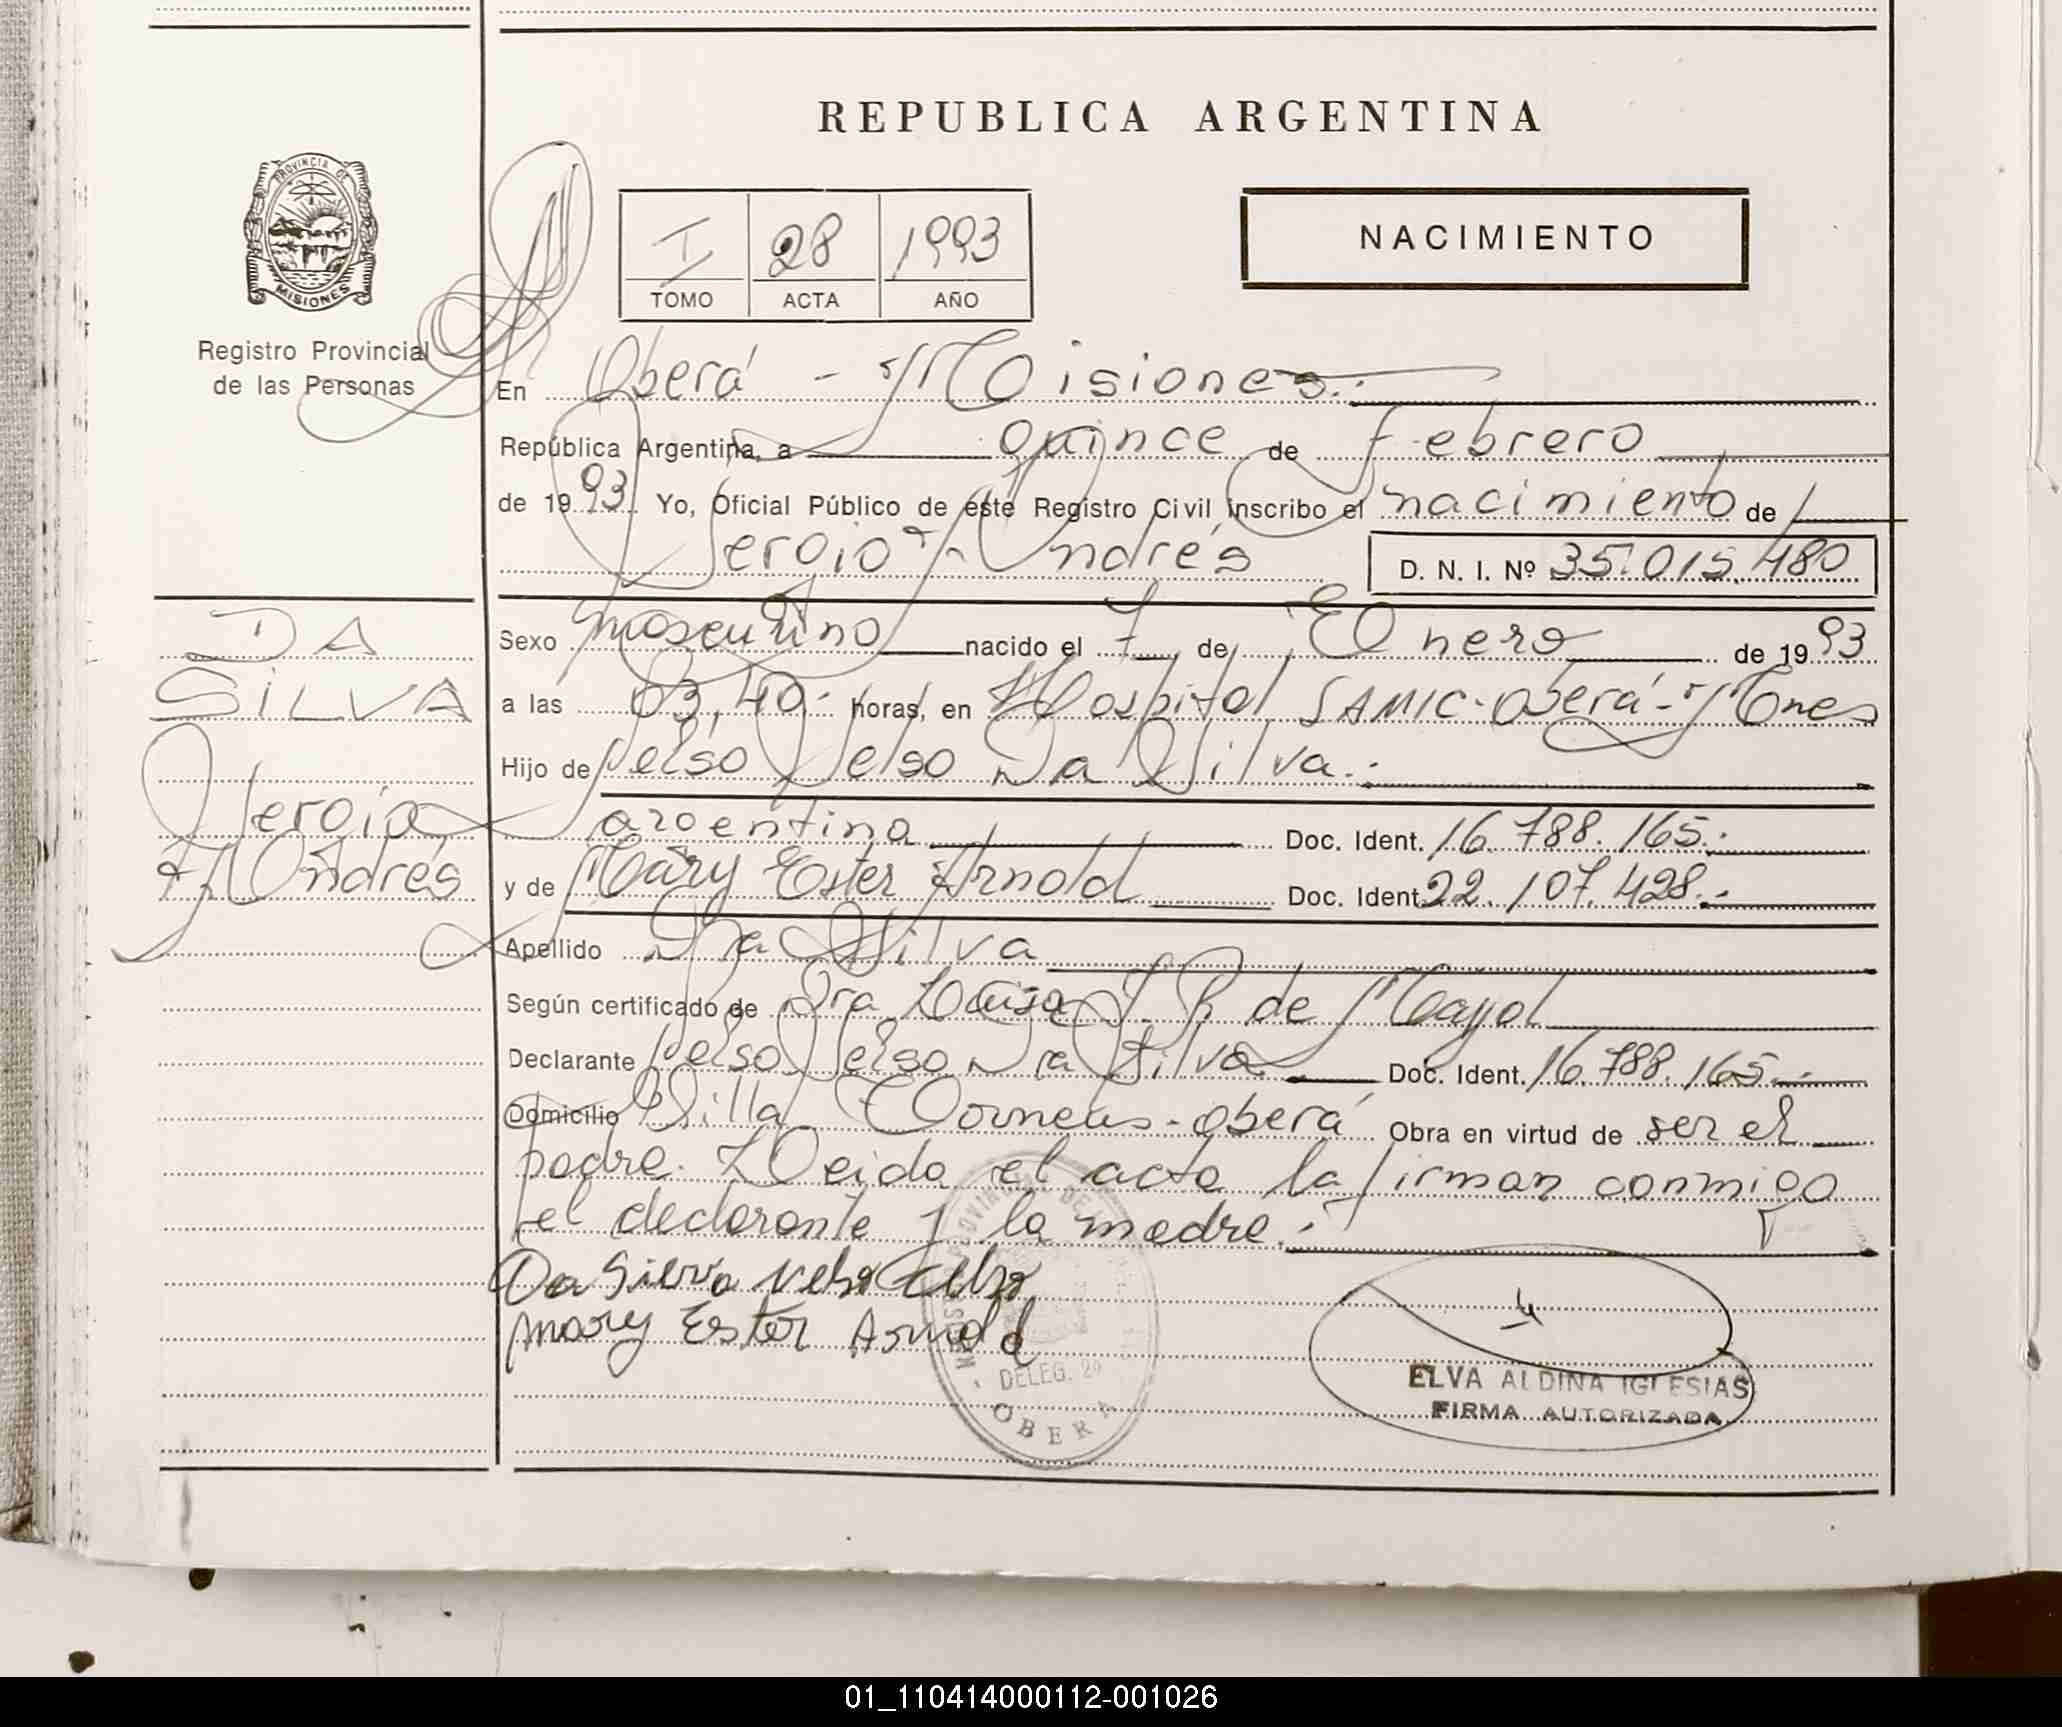 REPUBLICA ARGENTINA
PROVINCIA DE
MISIONES
Registro Provincial
de las Personas
I 28 1993
TOMO ACTA AÑO
NACIMIENTO
En Oberá - Misiones.
República Argentina, a quince de Febrero
de 1993. Yo, Oficial Público de este Registro Civil inscribo el nacimiento de
Sergio Andrés D. N. I. Nº 35.015.480
DA
SILVA
Sergio
Andrés
Sexo masculino nacido el 7 de Enero de 1993
a las 03,40 horas, en Hospital SAMIC-Oberá-Mnes
Hijo de Celso Nelso Da Silva.
argentina Doc. Ident. 16.788.165.
y de Mary Ester Arnold Doc. Ident. 22.107.428.
Apellido Da Silva
Según certificado de Dra Luisa R. de Mayol
Declarante Celso Nelso Da Silva Doc. Ident. 16.788.165
Domicilio Villa - Oberá Obra en virtud de ser el
padre. Leida el acta la firman conmigo
el declarante y la madre.
Da Silva Nelso Celso
Mary Ester Arnold
DELEG.
OBERA
ELVA ALDINA IGLESIAS
FIRMA AUTORIZADA
01_110414000112-001026